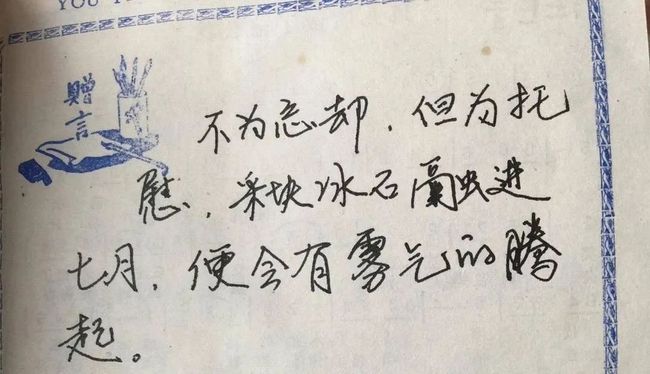 YOU
赠言
不为忘却，但为托
慰，采块冰石融进
七月，便会有雾气的腾
起。